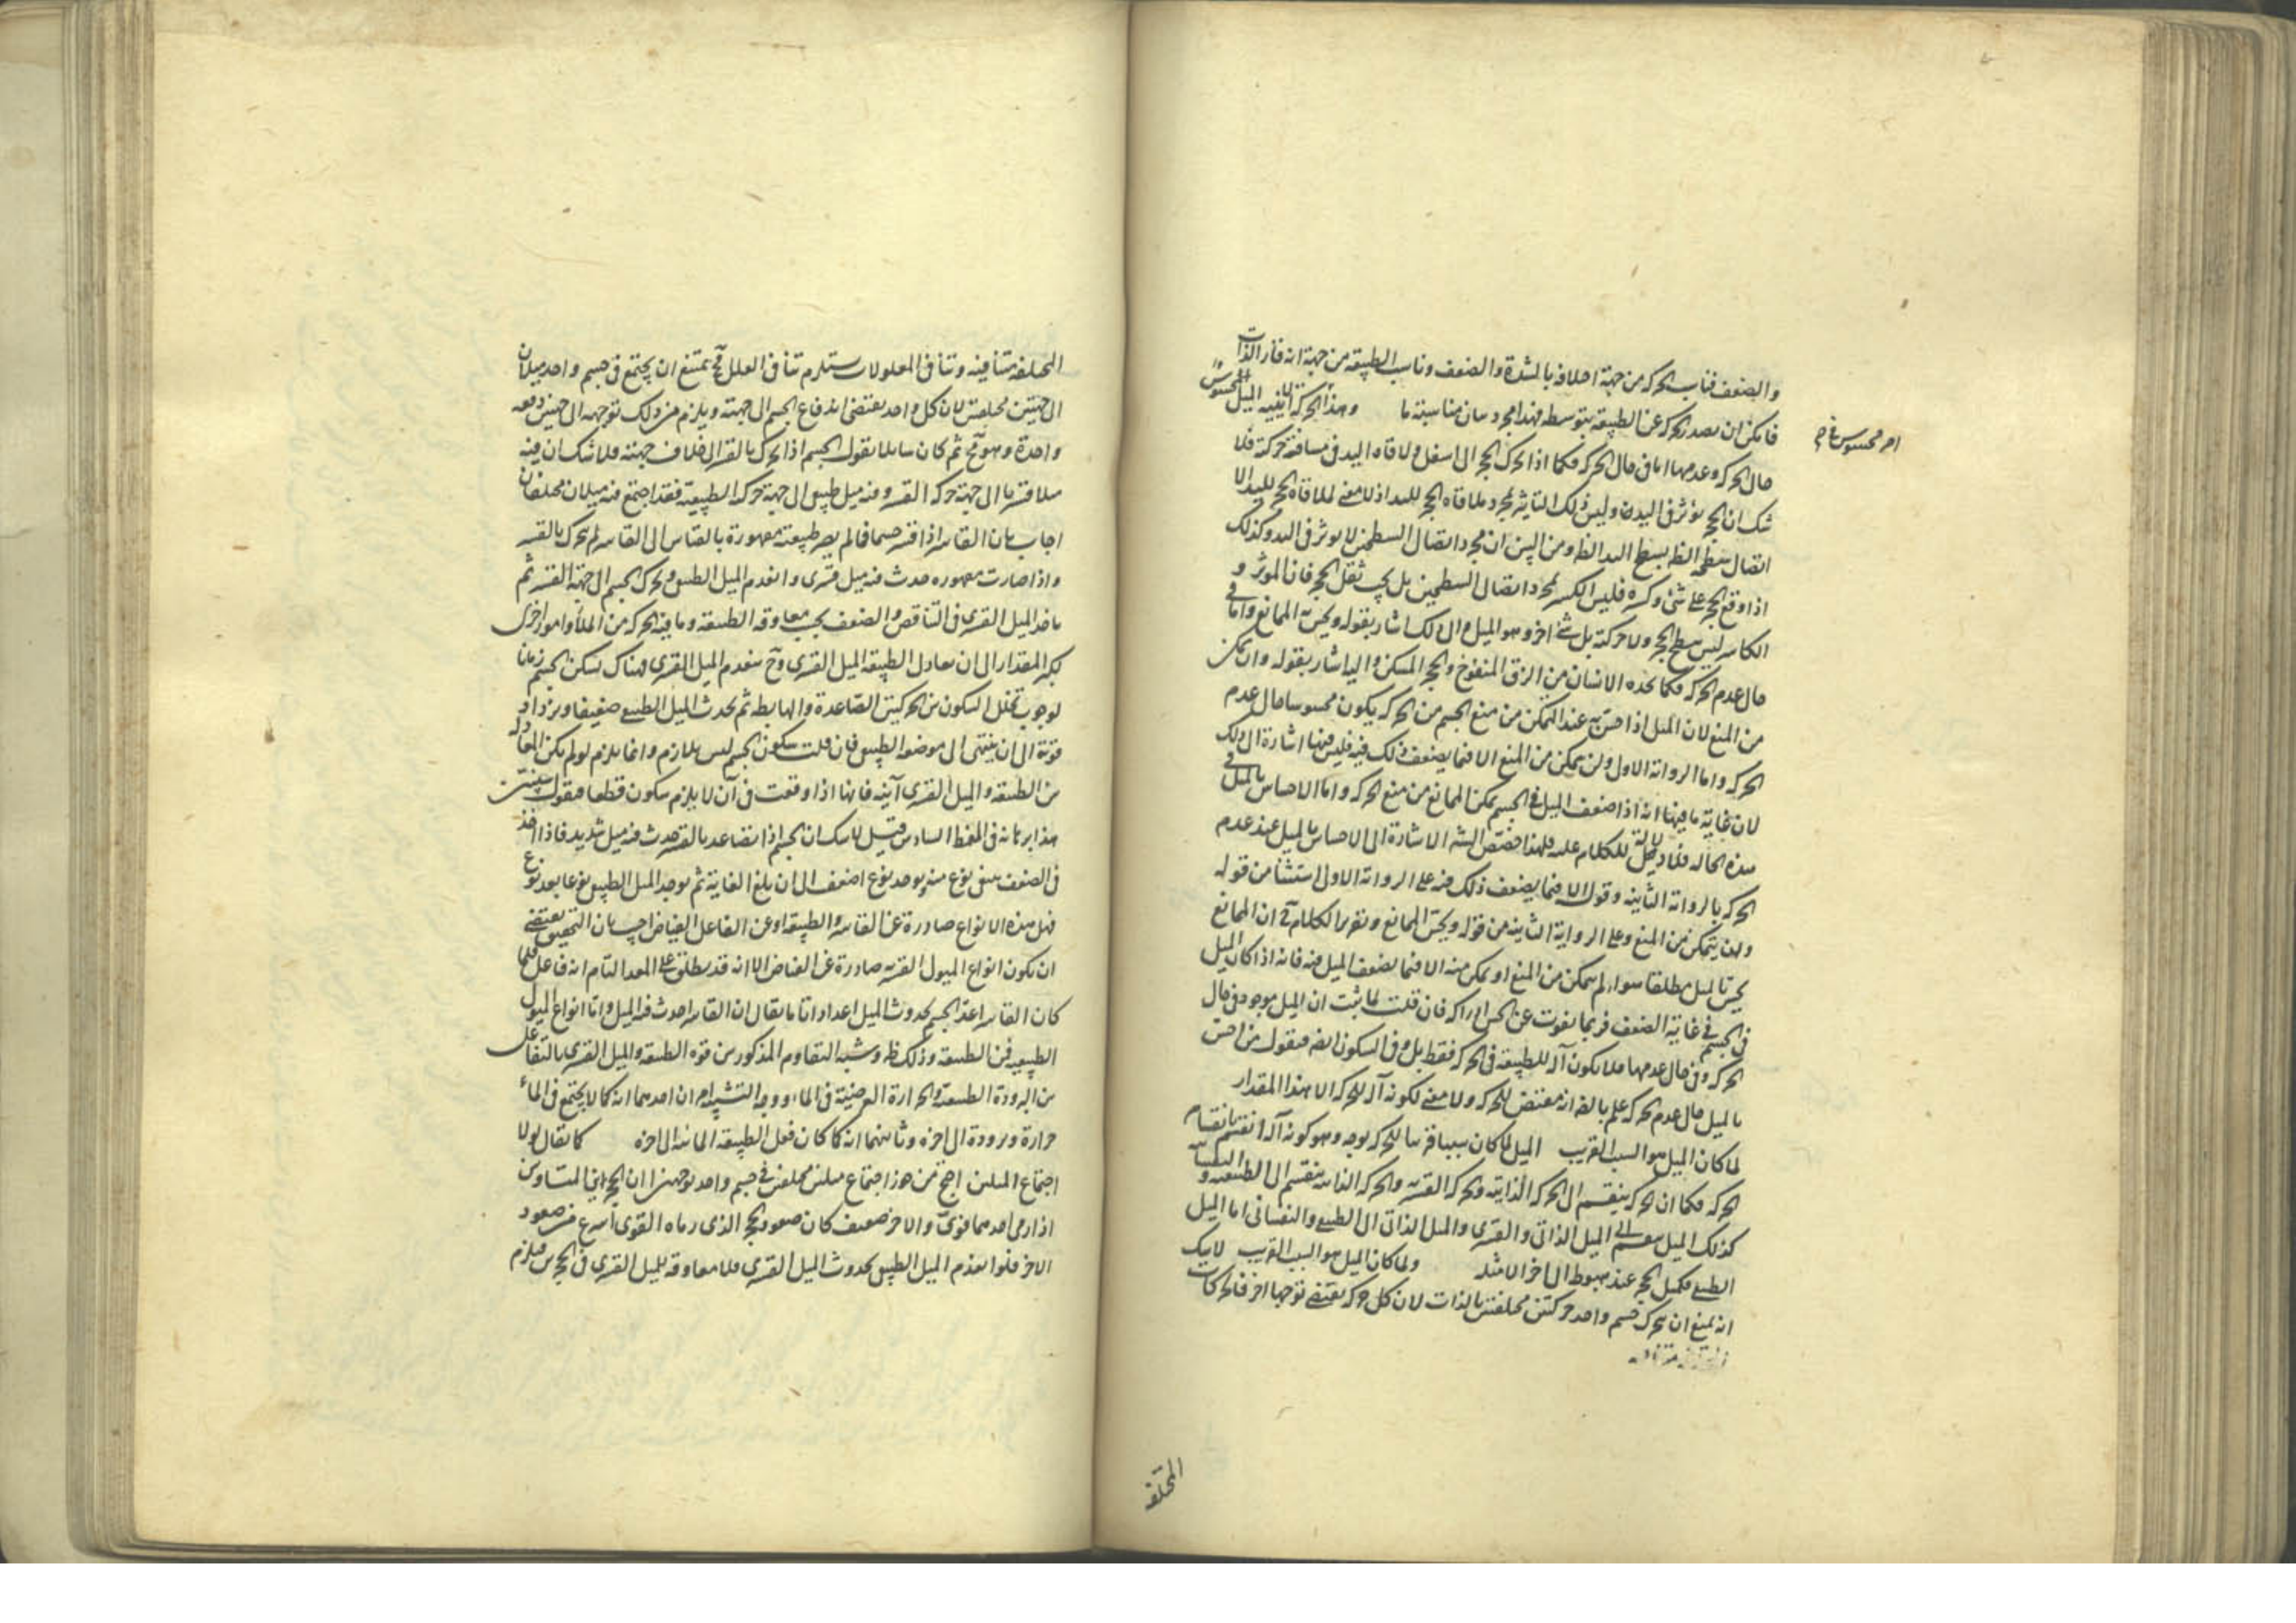 والضعف فناسب الحركة من جهة اختلافه بالشدة والضعف وناسب الطبيعة من جهة انه قار الذات
فامكن ان يصدر الحركة عن الطبيعة بتوسطه فهذا مجرد بيان مناسبة ما وهذا الحركة الميل المحسوس
امر محسوس في
حال الحركة وعدمها اما في حال الحركة فكما اذا تحرك الحجر الى اسفل ولاقاه اليد في مسافة حركته فلا
شك ان الحجر يؤثر في اليد وليس ذلك التاثير لمجرد ملاقاة الحجر لليد اذ لا معنى لملاقاة الحجر لليد الا
اتصال سطحه الظ بسطح اليد الظ ومن البين ان مجرد اتصال السطحين لا يوثر في اليد وكذلك
اذا وقع الحجر على شئ وكسره فليس الكسر لمجرد اتصال السطحين بل بحسب ثقل الحجر فان الموثر و
الكاسر ليس سطح الحجر ولا حركته بل شئ اخر وهو الميل والى ذلك اشار بقوله ويحس به الممانع واما في
حال عدم الحركة فكما يجده الانسان من الزق المنفوخ والحجر المسكن واليه اشار بقوله وان تمكن
من المنع لان الميل اذا احس به عند التمكن من منع الجسم من الحركة يكون محسوسا حال عدم
الحركة واما الرواية الاولى ولن يتمكن من المنع الا فيما يضعف ذلك فيه فليس فيها اشارة الى ذلك
لان غاية ما فيها انه اذا ضعف الميل في الجسم تمكن الممانع من منع الحركة واما الاحساس بالميل في
هذه الحالة فلا دلالة للكلام عليه فلهذا خصص الشه الاشارة الى الاحساس بالميل عند عدم
الحركة بالرواية الثانية وقوله الا فيما يضعف ذلك فيه على الرواية الاولى استثنا من قوله
ولن يتمكن من المنع وعلى الرواية الثانية من قوله ويحس الممانع وتقرير الكلام ح ان الممانع
يحس بالميل مطلقا سواء لم يتمكن من المنع او تمكن منه الا فيما يضعف الميل فيه فانه اذا كان الميل
في الجسم في غاية الضعف فربما يفوت عن الحس ادراكه فان قلت لما ثبت ان الميل موجود في حال
الحركة وفي حال عدمها فلا يكون آلة للطبيعة في الحركة فقط بل وفي السكون ايضه فنقول من احس
بالميل حال عدم الحركة علم بالضه انه مقتض للحركة ولا معنى لكونه آلة للحركة الا هذا المقدار
لما كان الميل هو السبب القريب الميل لما كان سببا قريبا للحركة بوجه وهو كونه آلة انقسم بانقسام
الحركة فكما ان الحركة ينقسم الى الحركة الذاتية والحركة القسرية والحركة الذاتية ينقسم الى الطبيعية والنفسانية
كذلك الميل ينقسم الى الميل الذاتي والقسري والميل الذاتي الى الطبيعي والنفساني اما الميل
الطبيعي فكميل الحجر عند هبوطه الى اخر الامثلة ولما كان الميل هو السبب القريب لا شك
انه يمتنع ان يتحرك جسم واحد حركتين مختلفتين بالذات لان كل حركة يقتضي توجها اخر فالحركات
المختلفة
المختلفة متنافية وتنافي المعلولات يستلزم تنافي العلل فح يمتنع ان يجتمع في جسم واحد ميلان
الى جهتين مختلفتين لان كل واحد يقتضي اندفاع الجسم الى جهته ويلزم من ذلك توجهه الى جهتين دفعه
واحدة وهو مح ثم كان سايلا يقول الجسم اذا تحرك بالقسر الى خلاف جهته فلا شك ان فيه
ميلا قسريا الى جهة حركة القسر وفيه ميل طبيعي الى جهة حركة الطبيعية فقد اجتمع فيه ميلان مختلفان
اجاب بان القاسر اذا قسر جسما فما لم يصر طبيعته مقهورة بالقياس الى القاسر لم يتحرك بالقسر
واذا صارت مقهورة حدث فيه ميل قسري وانعدم الميل الطبيعي وتحرك الجسم الى جهة القسر ثم
ياخذ الميل القسري في التناقص والضعف بحسب معاوقة الطبيعة وما فيه الحركة من الملأ وامور اخرى
ككبر المقدار الى ان يعادل الطبيعة الميل القسري وح ينعدم الميل القسري فهناك يسكن الجسم زمانا
لوجوب تخلل السكون بين الحركتين الصاعدة والهابطة ثم يحدث الميل الطبيعي ضعيفا ويزداد
قوته الى ان ينتهي الى موضعه الطبيعي فان قلت سكون الجسم ليس بلازم وانما يلزم لو لم يكن المعادلة
بين الطبيعة والميل القسري آنية فانها اذا وقعت في آن لا يلزم سكون قطعا فنقول سيتبين
هذا ببرهانه في النمط السادس قيل لا شك ان الجسم اذا تصاعد بالقسر حدث فيه ميل شديد فاذا اخذ
في الضعف ينتفى نوع منه ويوجد نوع اضعف الى ان يبلغ الغاية ثم يوجد الميل الطبيعي نوعا بعد نوع
فهل هذه الانواع صادرة عن القاسر والطبيعة او عن الفاعل الفياض اجيب بان التحقيق يقتضي
ان يكون انواع الميول القسرية صادرة عن الفياض الا انه قد يطلق على المعد التام انه فاعل فلما
كان القاسر اعد الجسم لحدوث الميل اعدادا تاما يقال ان القاسر احدث فيه الميل واما انواع الميول
الطبيعية فمن الطبيعة وذلك ظ وشبه التقاوم المذكور بين قوة الطبيعة والميل القسري بالتفاعل
بين البرودة الطبيعية والحرارة العرضية في الماء ووجه التشبيه امران احدهما انه كما لا يجتمع في الماء
حرارة وبرودة الى اخره وثانيهما انه كما كان فعل الطبيعة المائية الى اخره كما يقال لولا
اجتماع الميلين احتج من جوز اجتماع ميلين مختلفين في جسم واحد بوجهين ا ان الحجرين المتساويين
اذا رمى احدهما قوى والاخر ضعيف كان صعود الحجر الذي رماه القوى اسرع من صعود
الاخر فلو انعدم الميل الطبيعي بحدوث الميل القسري فلا معاوقة للميل القسري في الحجرين فلزم